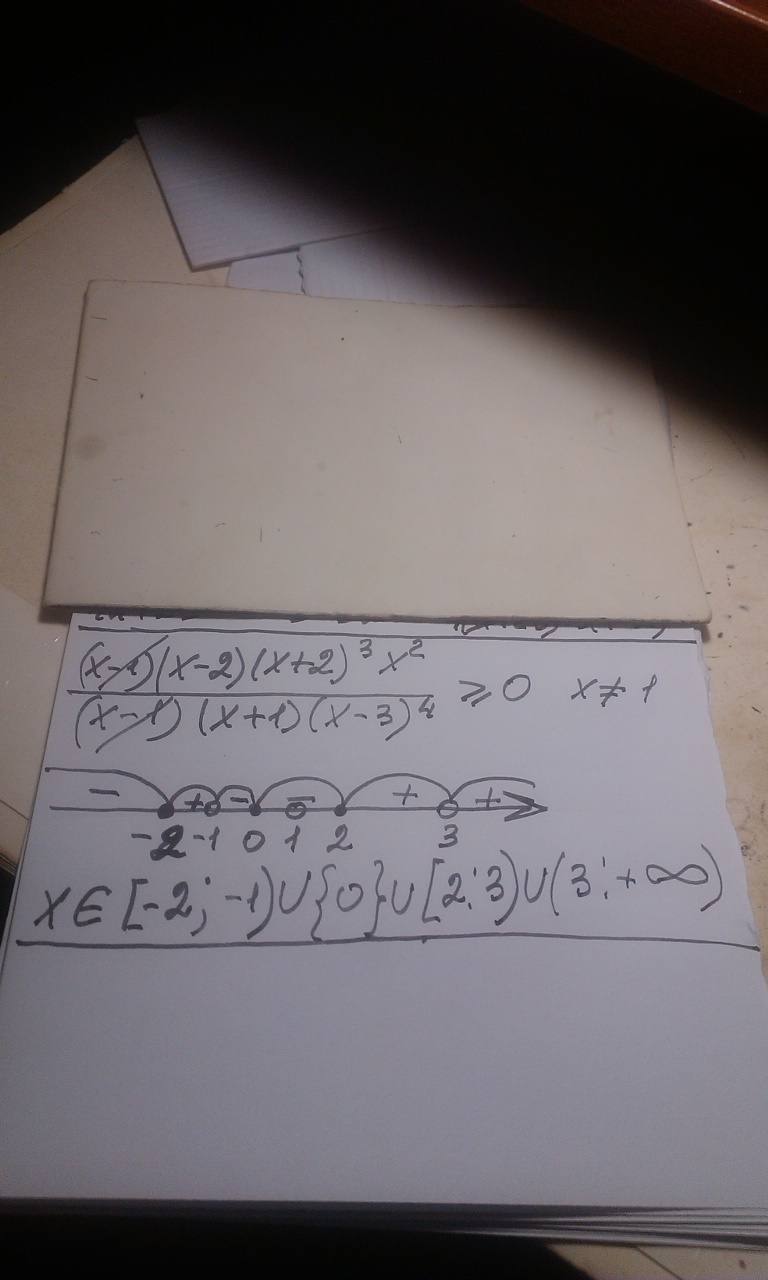 (x-1)(x-2)(x+2)³ x²
(x-1) (x+1)(x-3)⁴ ≥ 0 x≠1
- + - - + +
-2 -1 0 1 2 3
x∈[-2; -1)∪{0}∪[2; 3)∪(3; +∞)